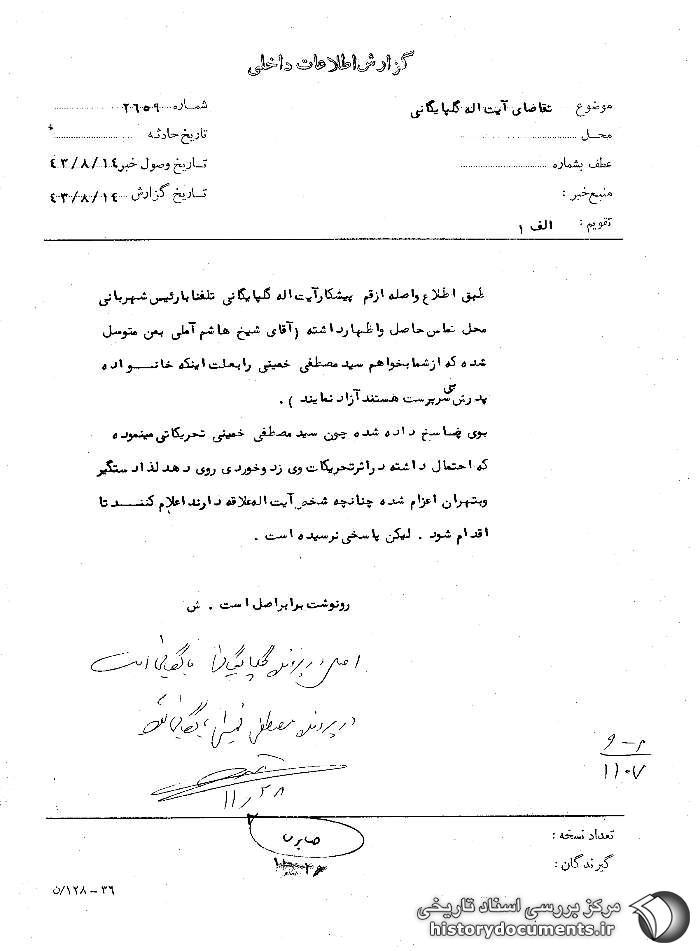 گزارش اطلاعات داخلی
موضوع تقاضای آیت اله گلپایگانی
شماره ۲٦٥۹
محل
تاریخ حادثه
عطف بشماره
تاریخ وصول خبر ٤۳/۸/۱٤
منبع خبر :
تاریخ گزارش ٤۳/۸/۱٤
تقویم : الف ۱
طبق اطلاع واصله از قم پیشکار آیت اله گلپایگانی تلفنا با رئیس شهربانی
محل تماس حاصل و اظهار داشته (آقای شیخ هاشم آملی بمن متوسل
شده که از شما بخواهم سید مصطفی خمینی را بعلت اینکه خانواده
پدرش بی سرپرست هستند آزاد نمایند ) .
بوی پاسخ داده شده چون سید مصطفی خمینی تحریکاتی مینموده
که احتمال داشته در اثر تحریکات وی زد و خوردی روی دهد لذا دستگیر
و بتهران اعزام شده چنانچه شخص آیت اله علاقه دارند اعلام کنند تا
اقدام شود . لیکن پاسخی نرسیده است .
رونوشت برابر اصل است . ش
اصل در پرونده گلپایگانی بایگانی است
در پرونده مصطفی خمینی بایگانی شود
۱۱/۲۸
۱۱۰۷
صابری
تعداد نسخه :
گیرندگان :
۳٦ – ۱۲۸/ن
مرکز بررسی اسناد تاریخی
historydocuments.ir